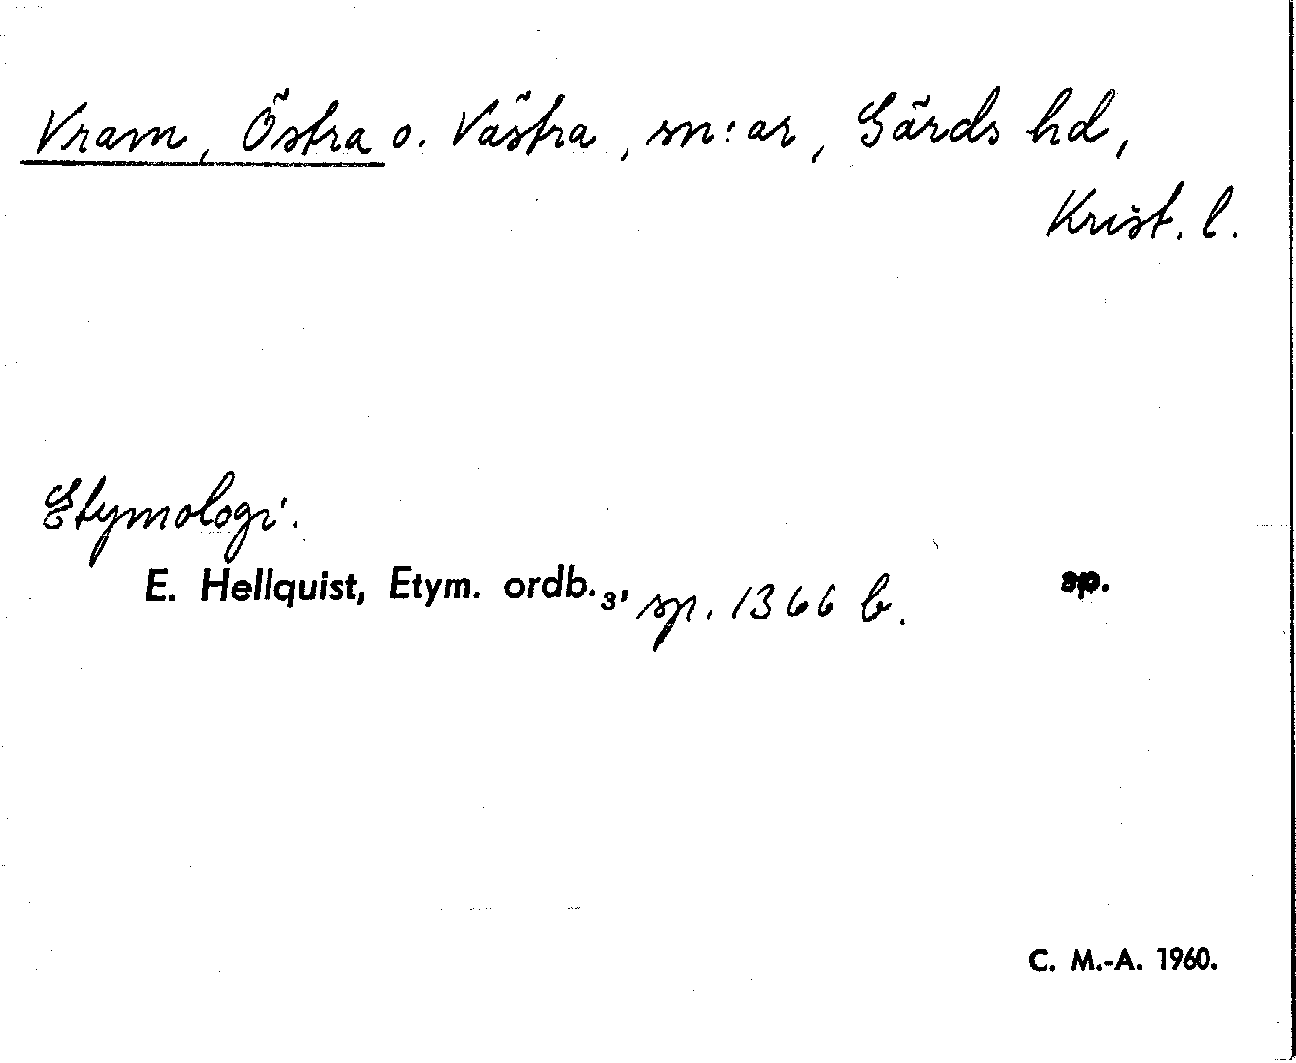 Vram, Östra o. Västra, sn:ar, Gärds hd,
Krist. l.
Etymologi.
E. Hellquist, Etym. ordb.₃, sp. 1366 b. sp.
C. M.-A. 1960.